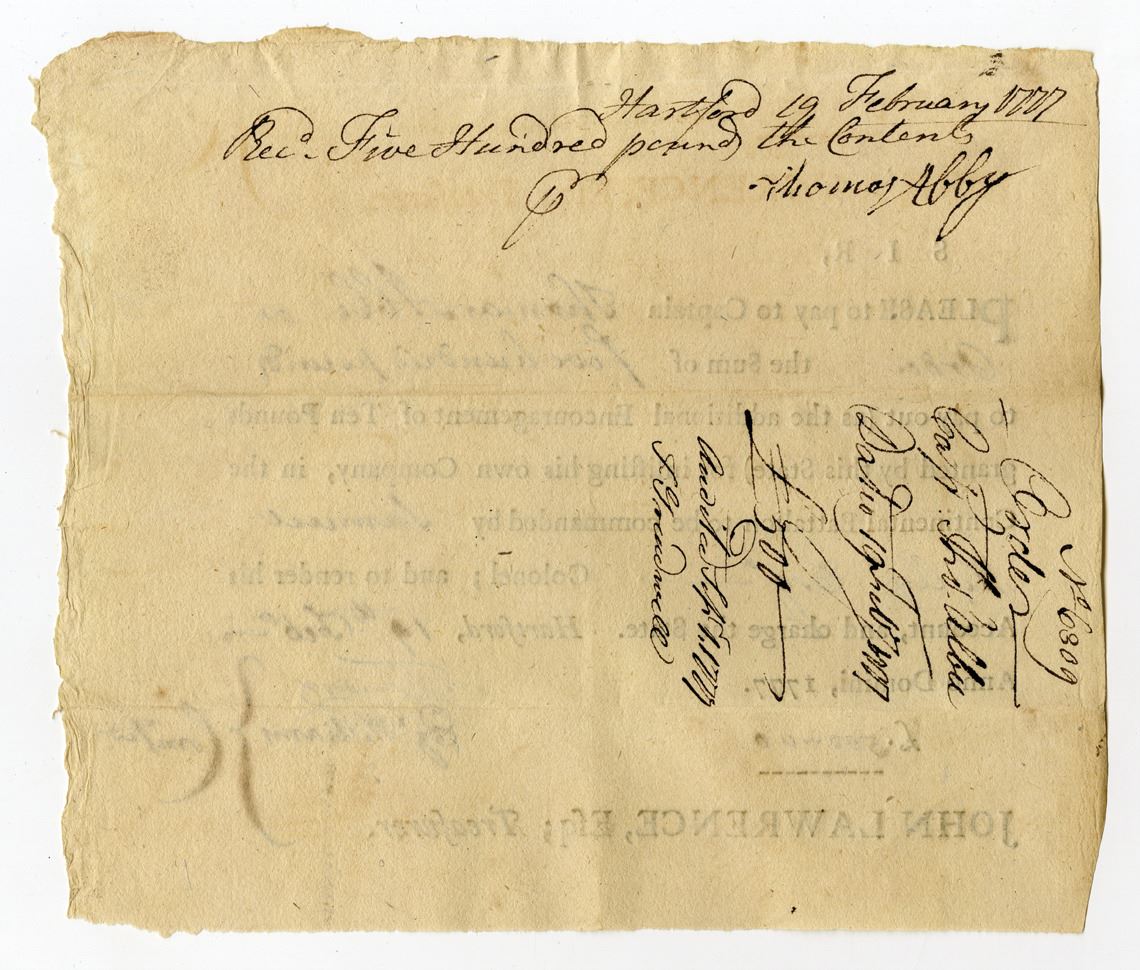 Hartford 19 February 1777
Recd. Five Hundred pounds the Contents
Thomas Abby
No 6309
Order
Capt Thos. Abbe
Dated 19 Feb 1777
£500
Audited Sept
S I R,
PLEASE to pay to Captain Thomas Abbe
the Sum of five hundred pounds
to pay out as the additional Encouragement of Ten Pounds
granted by this State, for inlisting his own Company, in the
Continental Battalion to be commanded by
Colonel; and to render his
Account, and charge the State. Hartford, 19th Feby
Anno Domini, 1777.
£500
JOHN LAWRENCE, Esq; Treasurer.